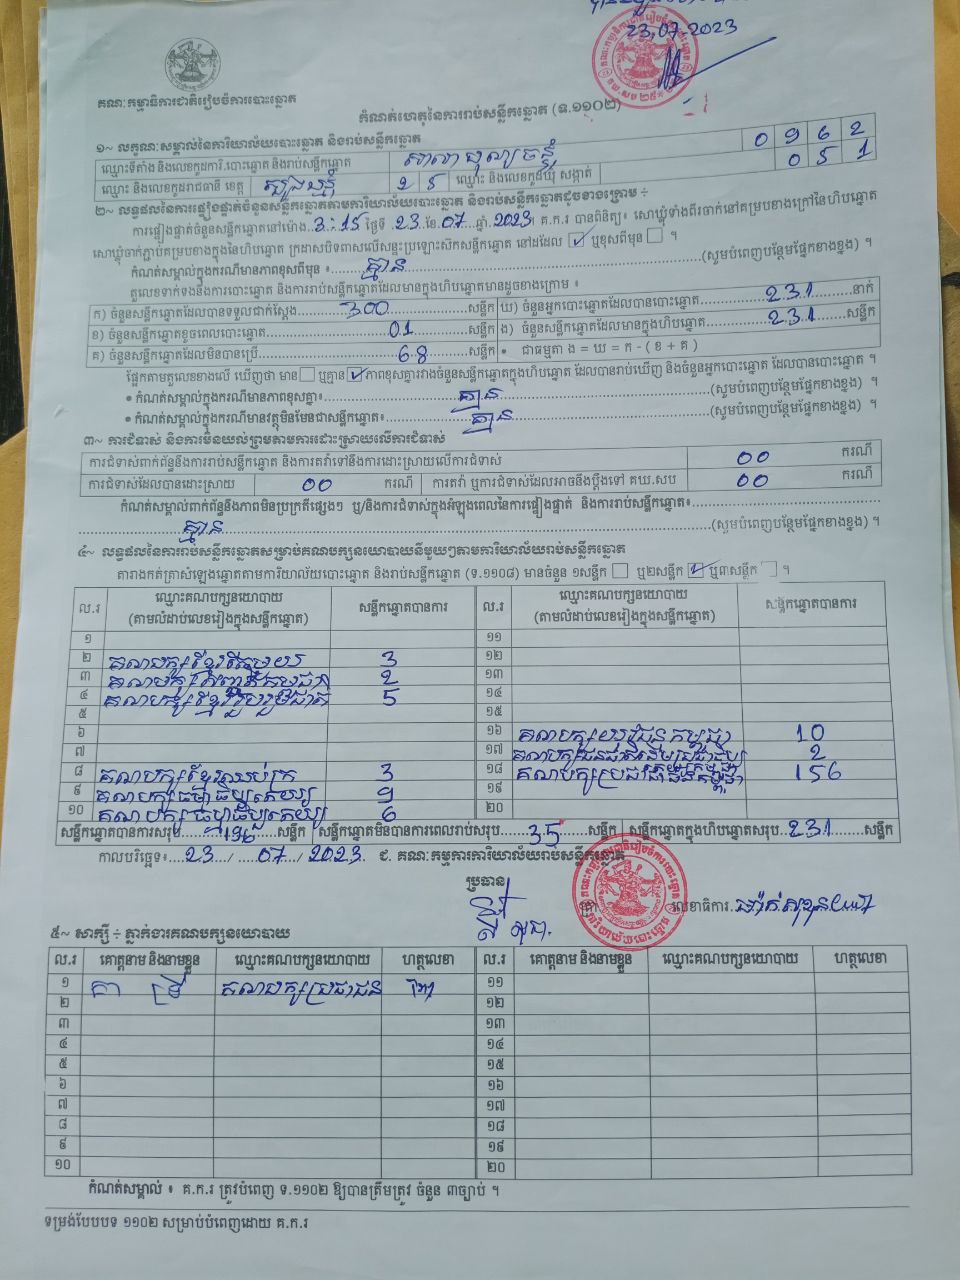 23,07.2023
គណៈកម្មាធិការជាតិរៀបចំការបោះឆ្នោត
កំណត់ហេតុនៃការរាប់សន្លឹកឆ្នោត (ទ.១១០២)
១~ លក្ខណៈសម្គាល់នៃការិយាល័យបោះឆ្នោត និងរាប់សន្លឹកឆ្នោត
ឈ្មោះទីតាំង និងលេខកូដការិ.បោះឆ្នោត និងរាប់សន្លឹកឆ្នោត 0 9 6 2
ឈ្មោះ និងលេខកូដរាជធានី ខេត្ត ត្បូងឃ្មុំ 2 5 ឈ្មោះ និងលេខកូដឃុំ សង្កាត់ 0 5 1
២~ លទ្ធផលនៃការផ្ទៀងផ្ទាត់ចំនួនសន្លឹកឆ្នោតតាមការិយាល័យបោះឆ្នោត និងរាប់សន្លឹកឆ្នោតដូចខាងក្រោម ÷
ការផ្ទៀងផ្ទាត់ចំនួនសន្លឹកឆ្នោតនៅម៉ោង 3:15 ថ្ងៃទី 23 ខែ 07 ឆ្នាំ 2023។ គ.ក.រ បានពិនិត្យ៖ សោឃ្លុំទាំងពីរចាក់នៅគម្របខាងក្រៅនៃហិបឆ្នោត
សោឃ្លុំចាក់ភ្ជាប់គម្របខាងក្នុងនៃហិបឆ្នោត ក្រដាសបិទពាសលើសន្ទះប្រឡោះសិកសន្លឹកឆ្នោត នៅដដែល ☑ ឬខុសពីមុន ☐ ។
កំណត់សម្គាល់ក្នុងករណីមានភាពខុសពីមុន ៖ គ្មាន (សូមបំពេញបន្ថែមផ្នែកខាងខ្នង) ។
តួលេខទាក់ទងនឹងការបោះឆ្នោត និងការរាប់សន្លឹកឆ្នោតដែលមានក្នុងហិបឆ្នោតមានដូចខាងក្រោម ៖
ក) ចំនួនសន្លឹកឆ្នោតដែលបានទទួលជាក់ស្តែង 300 សន្លឹក ឃ) ចំនួនអ្នកបោះឆ្នោតដែលបានបោះឆ្នោត 231 នាក់
ខ) ចំនួនសន្លឹកឆ្នោតខូចពេលបោះឆ្នោត 01 សន្លឹក ង) ចំនួនសន្លឹកឆ្នោតដែលមានក្នុងហិបឆ្នោត 231 សន្លឹក
គ) ចំនួនសន្លឹកឆ្នោតដែលមិនបានប្រើ 68 សន្លឹក • ជាធម្មតា ង = ឃ = ក - ( ខ + គ )
ផ្អែកតាមតួលេខខាងលើ ឃើញថា មាន ☐ ឬគ្មាន ☑ ភាពខុសគ្នារវាងចំនួនសន្លឹកឆ្នោតក្នុងហិបឆ្នោត ដែលបានរាប់ឃើញ និងចំនួនអ្នកបោះឆ្នោត ដែលបានបោះឆ្នោត ។
• កំណត់សម្គាល់ក្នុងករណីមានភាពខុសគ្នា៖ គ្មាន (សូមបំពេញបន្ថែមផ្នែកខាងខ្នង) ។
• កំណត់សម្គាល់ក្នុងករណីមានវត្ថុមិនមែនជាសន្លឹកឆ្នោត៖ គ្មាន (សូមបំពេញបន្ថែមផ្នែកខាងខ្នង) ។
៣~ ការជំទាស់ និងការមិនយល់ព្រមតាមការដោះស្រាយលើការជំទាស់
ការជំទាស់ពាក់ព័ន្ធនឹងការរាប់សន្លឹកឆ្នោត និងការតវ៉ាទៅនឹងការដោះស្រាយលើការជំទាស់ 00 ករណី
ការជំទាស់ដែលបានដោះស្រាយ 00 ករណី ការតវ៉ា ឬការជំទាស់ដែលអាចនឹងប្តឹងទៅ គឃ.សប 00 ករណី
កំណត់សម្គាល់ពាក់ព័ន្ធនឹងភាពមិនប្រក្រតីផ្សេងៗ ឬ/និងការជំទាស់ក្នុងអំឡុងពេលនៃការផ្ទៀងផ្ទាត់ និងការរាប់សន្លឹកឆ្នោត៖
គ្មាន (សូមបំពេញបន្ថែមផ្នែកខាងខ្នង) ។
៤~ លទ្ធផលនៃការរាប់សន្លឹកឆ្នោតសម្រាប់គណបក្សនយោបាយនីមួយៗតាមការិយាល័យរាប់សន្លឹកឆ្នោត
តារាងកត់ត្រាសំឡេងឆ្នោតតាមការិយាល័យបោះឆ្នោត និងរាប់សន្លឹកឆ្នោត (ទ.១១០៨) មានចំនួន ១សន្លឹក ☐ ឬ២សន្លឹក ☑ ឬ៣សន្លឹក ☐ ។
ល.រ ឈ្មោះគណបក្សនយោបាយ (តាមលំដាប់លេខរៀងក្នុងសន្លឹកឆ្នោត) សន្លឹកឆ្នោតបានការ ល.រ ឈ្មោះគណបក្សនយោបាយ (តាមលំដាប់លេខរៀងក្នុងសន្លឹកឆ្នោត) សន្លឹកឆ្នោតបានការ
១ ១១
២ គណបក្ស 3 ១២
៣ គណបក្ស 2 ១៣
៤ គណបក្សខ្មែររួបរួមជាតិ 5 ១៤
៥ ១៥
៦ ១៦ គណបក្សយុវជនកម្ពុជា 10
៧ ១៧ 2
៨ គណបក្សខ្មែរឈប់ក្រ 3 ១៨ គណបក្សប្រជាជនកម្ពុជា 156
៩ គណបក្ស 9 ១៩
១០ គណបក្សធម្មាធិបតេយ្យ 6 ២០
សន្លឹកឆ្នោតបានការសរុប 196 សន្លឹក សន្លឹកឆ្នោតមិនបានការពេលរាប់សរុប 35 សន្លឹក សន្លឹកឆ្នោតក្នុងហិបឆ្នោតសរុប 231 សន្លឹក
កាលបរិច្ឆេទ៖ 23 / 07 / 2023. ជ. គណៈកម្មការការិយាល័យរាប់សន្លឹកឆ្នោត
ប្រធាន លេខាធិការ
៥~ សាក្សី ÷ ភ្នាក់ងារគណបក្សនយោបាយ
ល.រ គោត្តនាម និងនាមខ្លួន ឈ្មោះគណបក្សនយោបាយ ហត្ថលេខា ល.រ គោត្តនាម និងនាមខ្លួន ឈ្មោះគណបក្សនយោបាយ ហត្ថលេខា
១ គណបក្សប្រជាជន ១១
២ ១២
៣ ១៣
៤ ១៤
៥ ១៥
៦ ១៦
៧ ១៧
៨ ១៨
៩ ១៩
១០ ២០
កំណត់សម្គាល់ ៖ គ.ក.រ ត្រូវបំពេញ ទ.១១០២ ឱ្យបានត្រឹមត្រូវ ចំនួន ៣ច្បាប់ ។
ទម្រង់បែបបទ ១១០២ សម្រាប់បំពេញដោយ គ.ក.រ